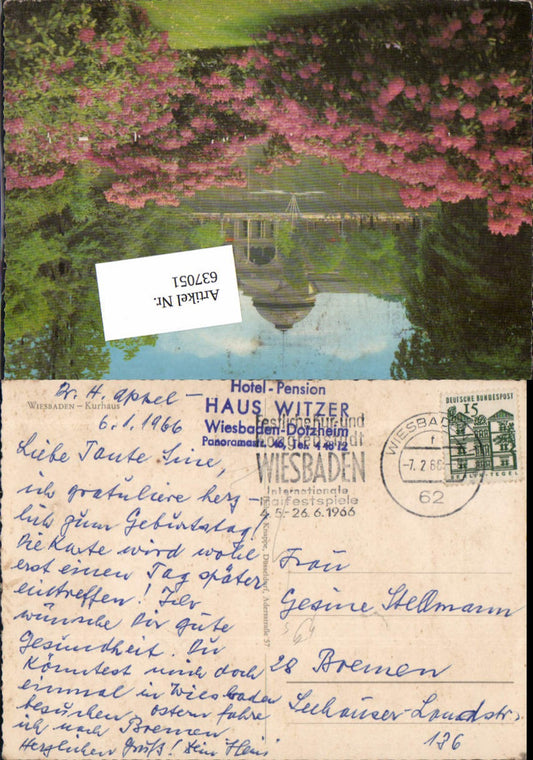 Artikel Nr.
637051
Dr. H. Appel –
WIESBADEN – Kurhaus
6.1.1966
Hotel - Pension
HAUS WITZER
Wiesbaden-Dotzheim
Panoramastr. Tel.
Festliche Kur- und
Kongreßstadt
WIESBADEN
Internationale
Maifestspiele
4.5.-26.6.1966
WIESBAD
-7.2.66
62
DEUTSCHE BUNDESPOST
15
TEGEL
Liebe Tante Sine,
ich gratuliere herz-
lich zum Geburtstag!
Die Karte wird wohl
erst einen Tag später
eintreffen! Ich
wünsche Dir gute
Gesundheit. Du
könntest mich doch
einmal in Wiesbaden
besuchen, Ostern fahre
ich nach Bremen
Herzlichen Gruß! Dein Hans
Düsseldorf, Adersstraße 57
Frau
Gesine Stellmann
28 Bremen
Seehauser-Landstr.
136